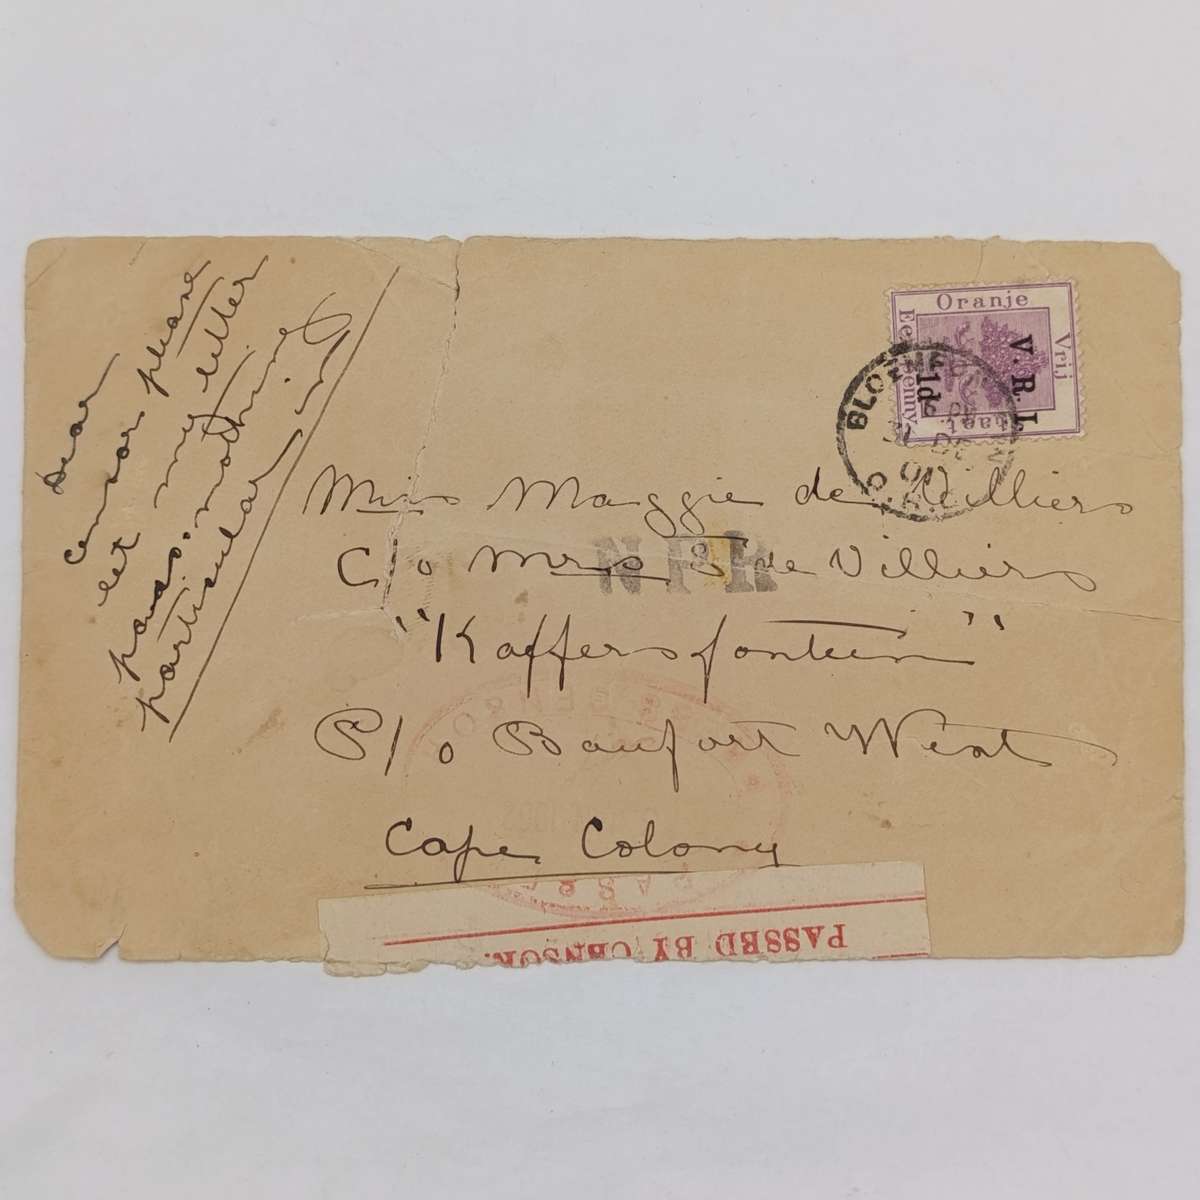 Dear
censor please
let my letter
pass, nothing
particular in
Oranje
Vrij
Een
Penny
V. R. I.
1d
BLOEMFO
Miss Maggie de Villiers
C/o Mrs de Villiers
NPR
"Kaffersfontein"
P/o Baufort West
Cape Colony
PASSED BY CENSOR.